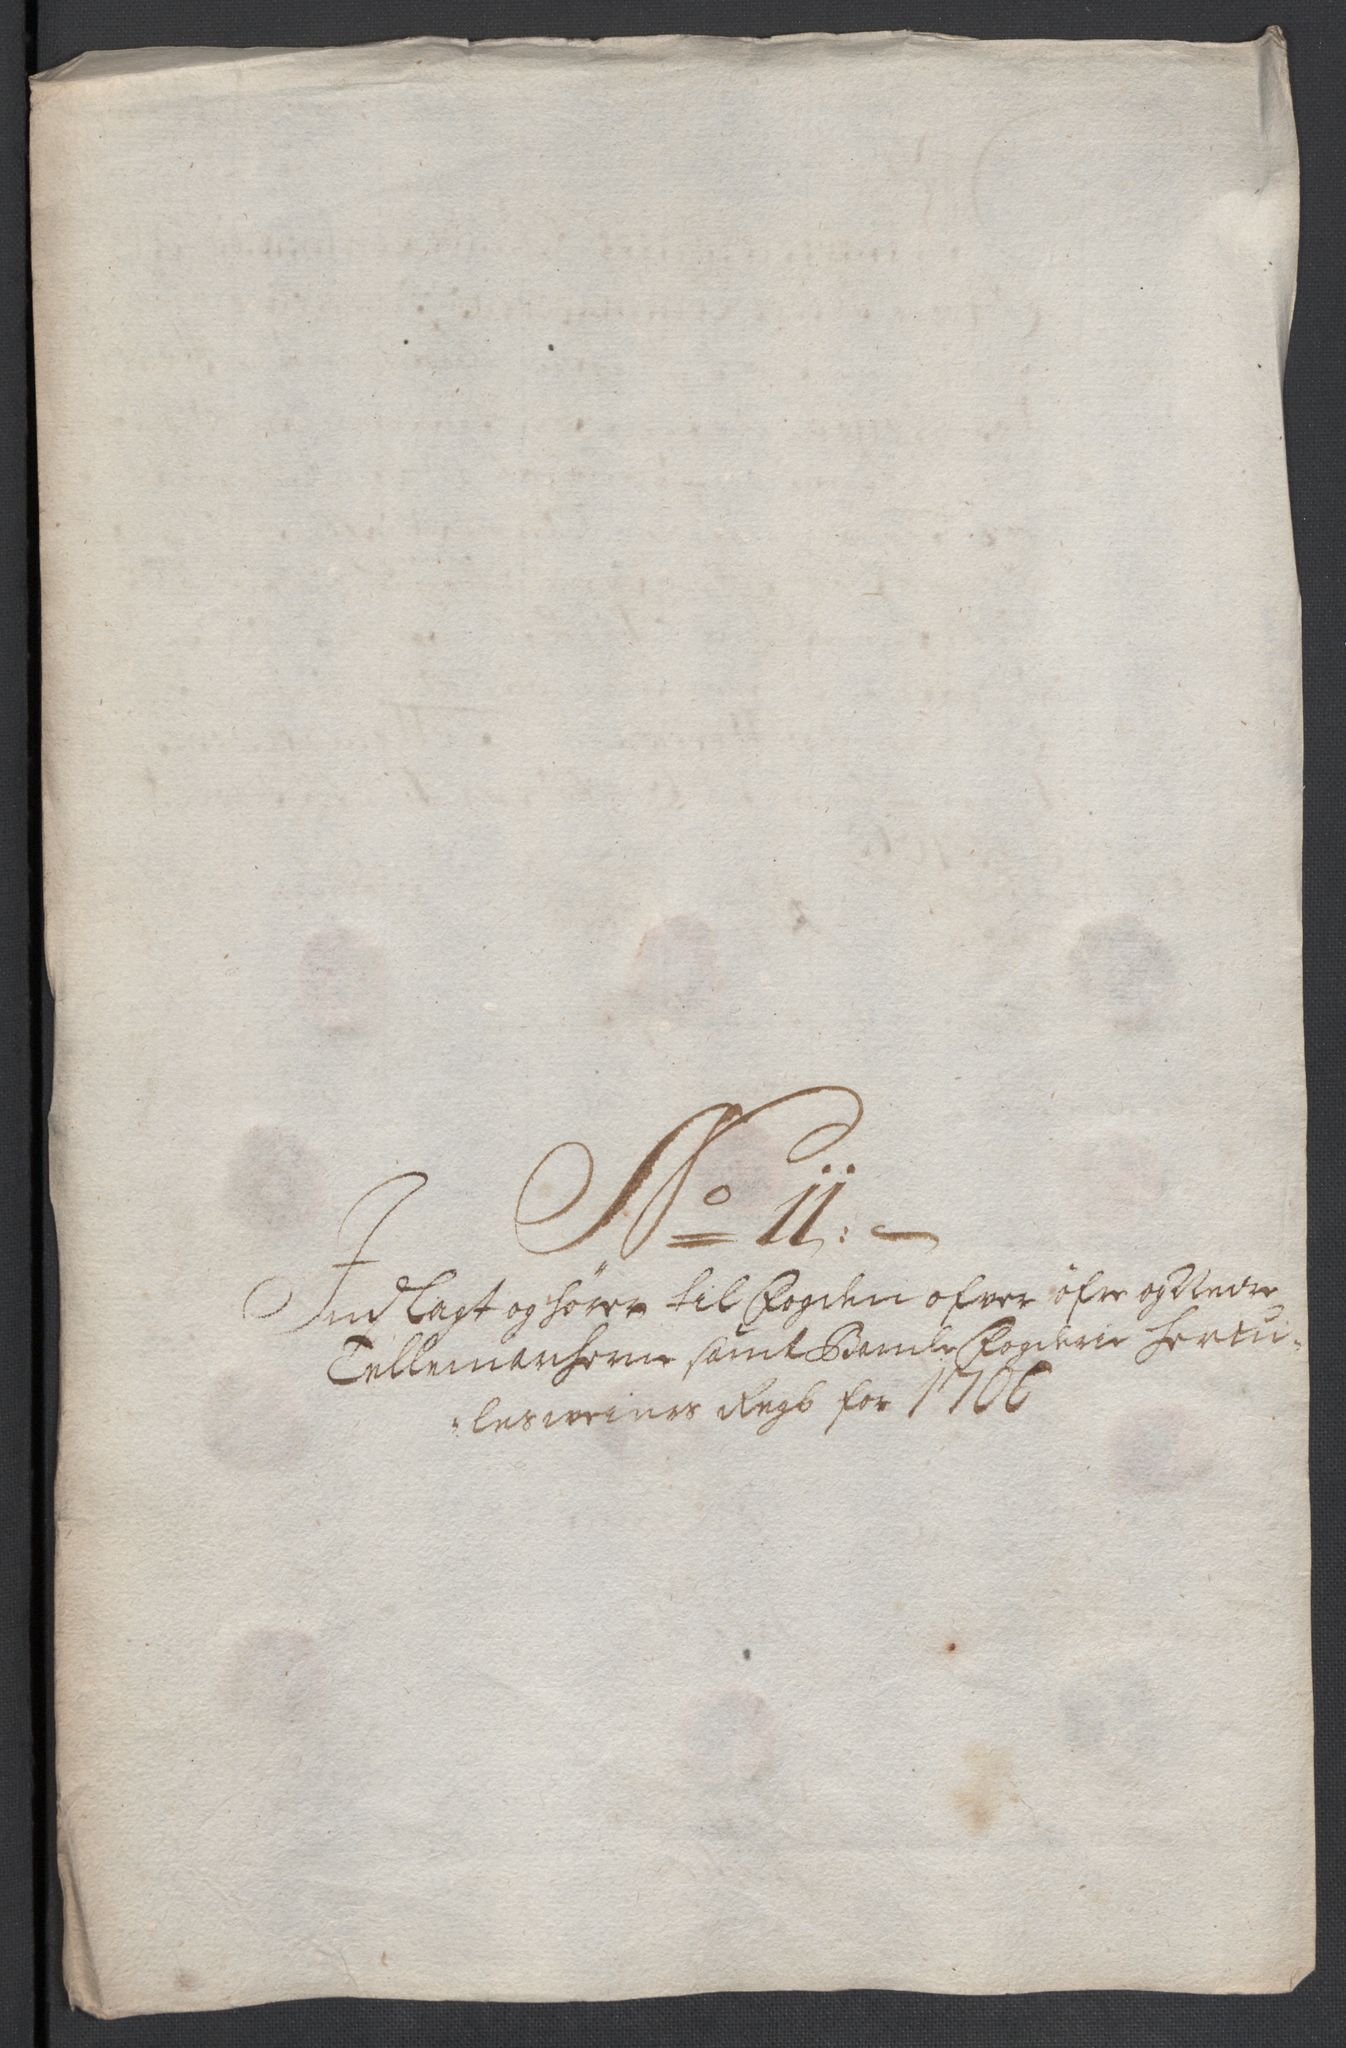 No 11:
Indlagt og hører til fogden ofver öfre og Nedre
Tellemarchern samt Bamble fogderie Hercu-
lesweiners Regb for 1706